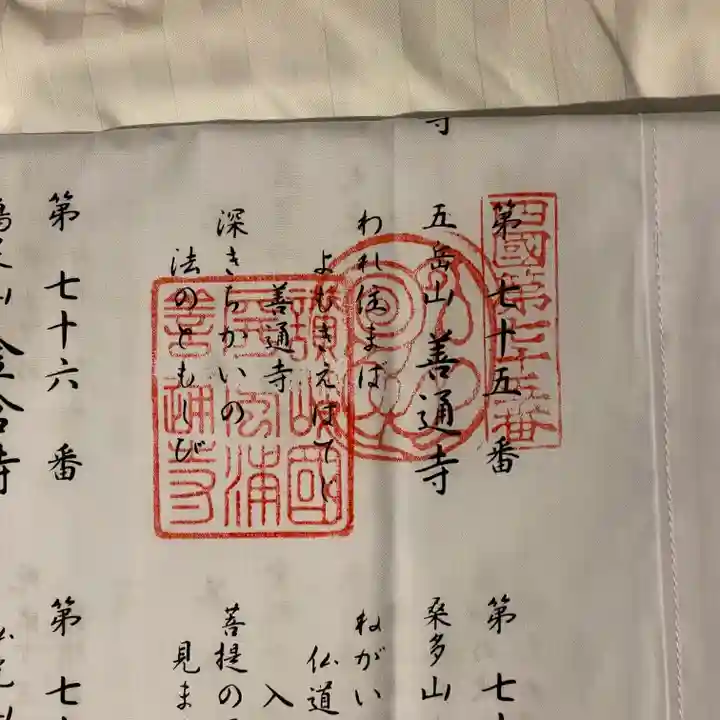 寺
第七十五番
五岳山 善通寺
われ住まば
よもきえはてじ
善通寺
深きちかいの
法のともしび
第七十六番
金倉寺
四國第七十五番
讃岐國
善通寺
第七
桑多山
ねがい
仏道
入
菩提の
見ま
第七